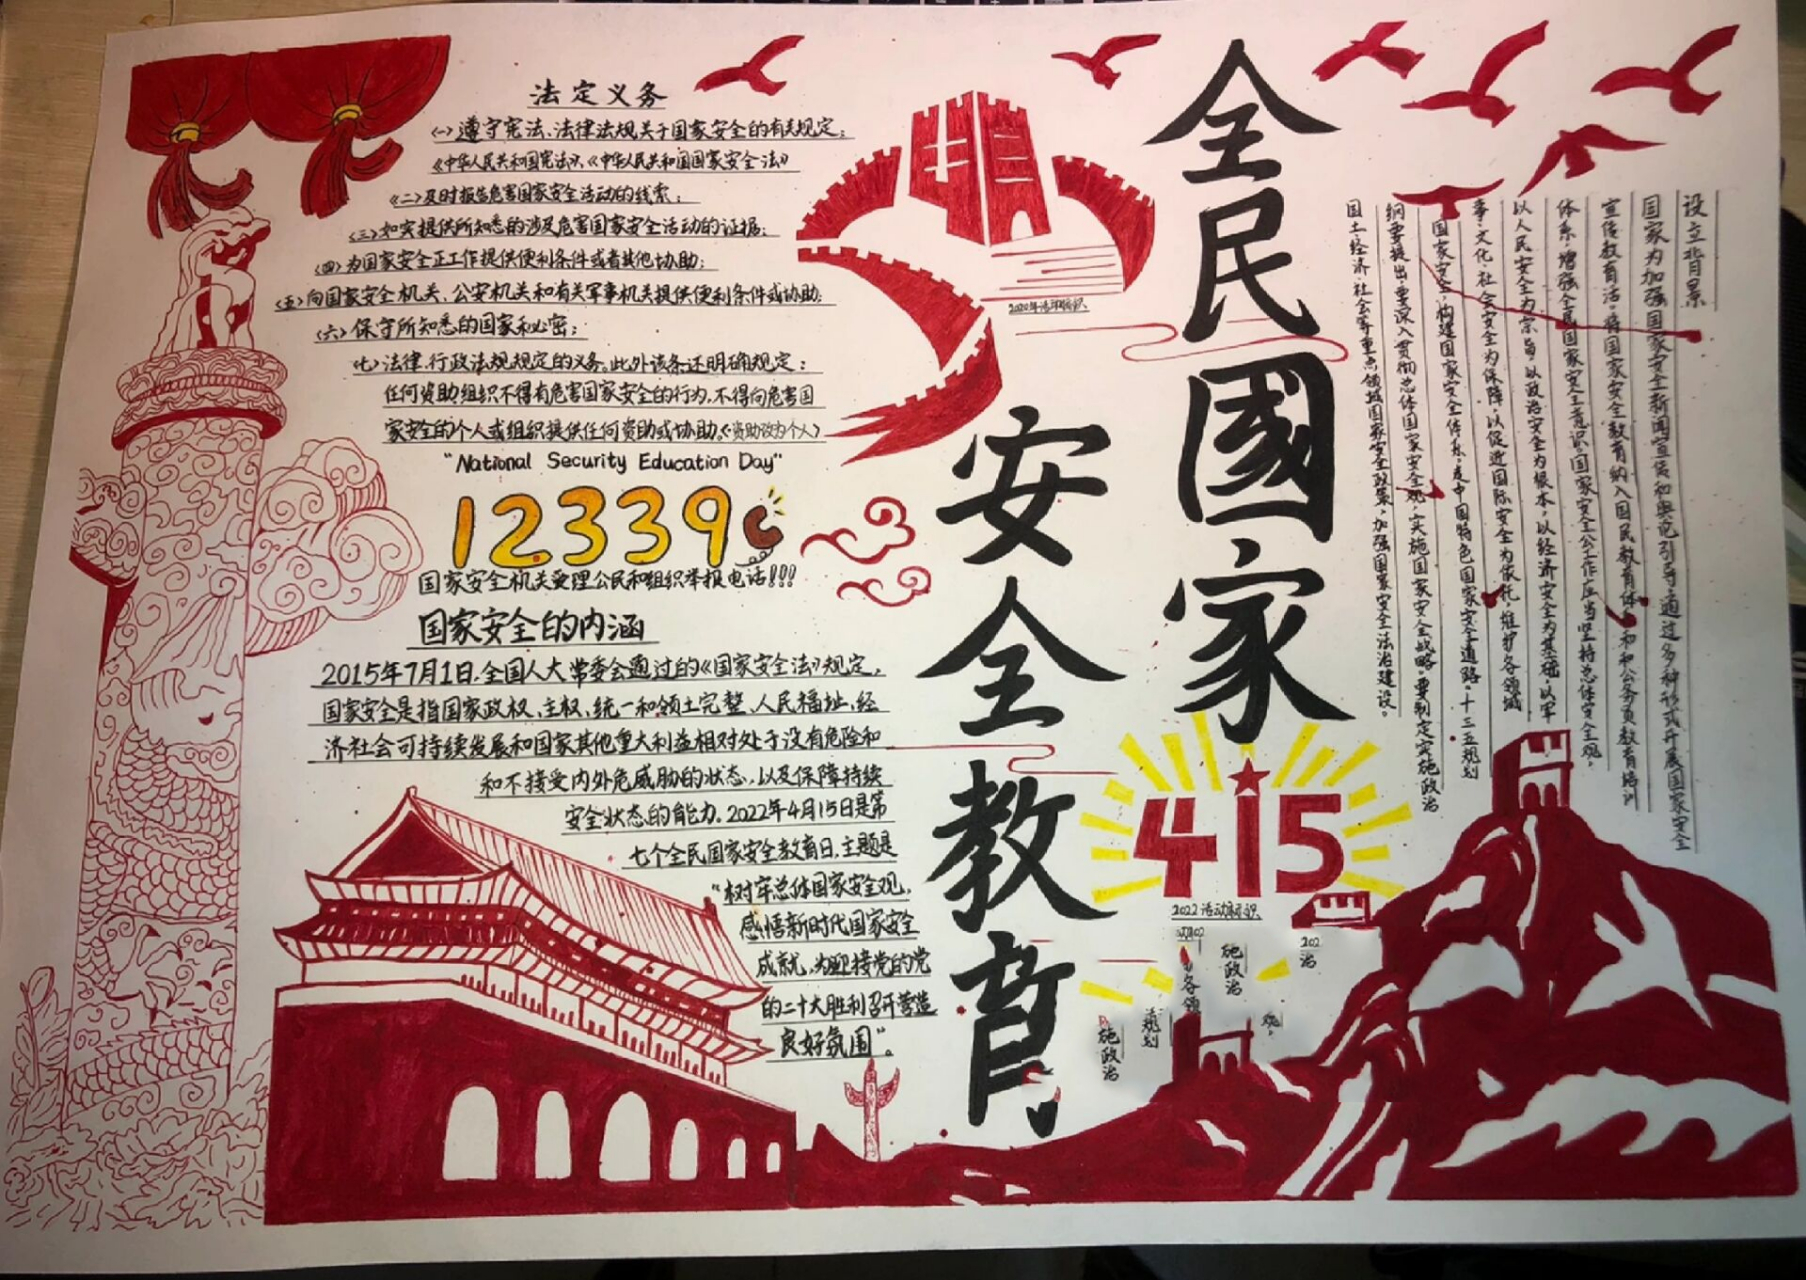 法定义务
<一>遵守宪法、法律法规关于国家安全的有关规定；
《中华人民共和国宪法》、《中华人民共和国国家安全法》
<二>及时报告危害国家安全活动的线索；
<三>如实提供所知悉的涉及危害国家安全活动的证据；
<四>为国家安全正工作提供便利条件或者其他协助；
<五>向国家安全机关、公安机关和有关军事机关提供便利条件或协助；
<六>保守所知悉的国家秘密；
<七>法律、行政法规规定的义务。此外该条还明确规定：
任何资助组织不得有危害国家安全的行为，不得向危害国
家安全的个人或组织提供任何资助或协助。
"National Security Education Day"
12339
国家安全机关受理公民和组织举报电话!!!
国家安全的内涵
2015年7月1日，全国人大常委会通过的《国家安全法》规定，
国家安全是指国家政权、主权、统一和领土完整、人民福祉、经
济社会可持续发展和国家其他重大利益相对处于没有危险和
和不接受内外危威胁的状态，以及保障持续
安全状态的能力。2022年4月15日是第
七个全民国家安全教育日，主题是
"树牢总体国家安全观，
感悟新时代国家安全
成就，为迎接党的党
的二十大胜利召开营造
良好氛围"。
全民國家
安全教育
415
2022活动标识
设立背景
国家为加强国家安全新闻宣传和舆论引导，通过多种形式开展国家安全
宣传教育活，将国家安全教育纳入国民教育体和和公务员教育培训
体系，增强全民国家安全意识。国家安全公工作应当坚持总体安全观，
以人民安全为宗旨，以政治安全为根本，以经济安全为基础，以军
事、文化、社会安全为保障，以促进国际安全为依托，维护各领域
国家安全，构建国家安全体系，走中国特色国家安全道路。十三五规划
纲要提出，要深入贯彻总体国家安全观，实施国家安全战略，要制定实施政治
国土经济、社会等重点领域国家安全政策，加强国家安全法治建设。
各领
施政治
施政治
规划
观。